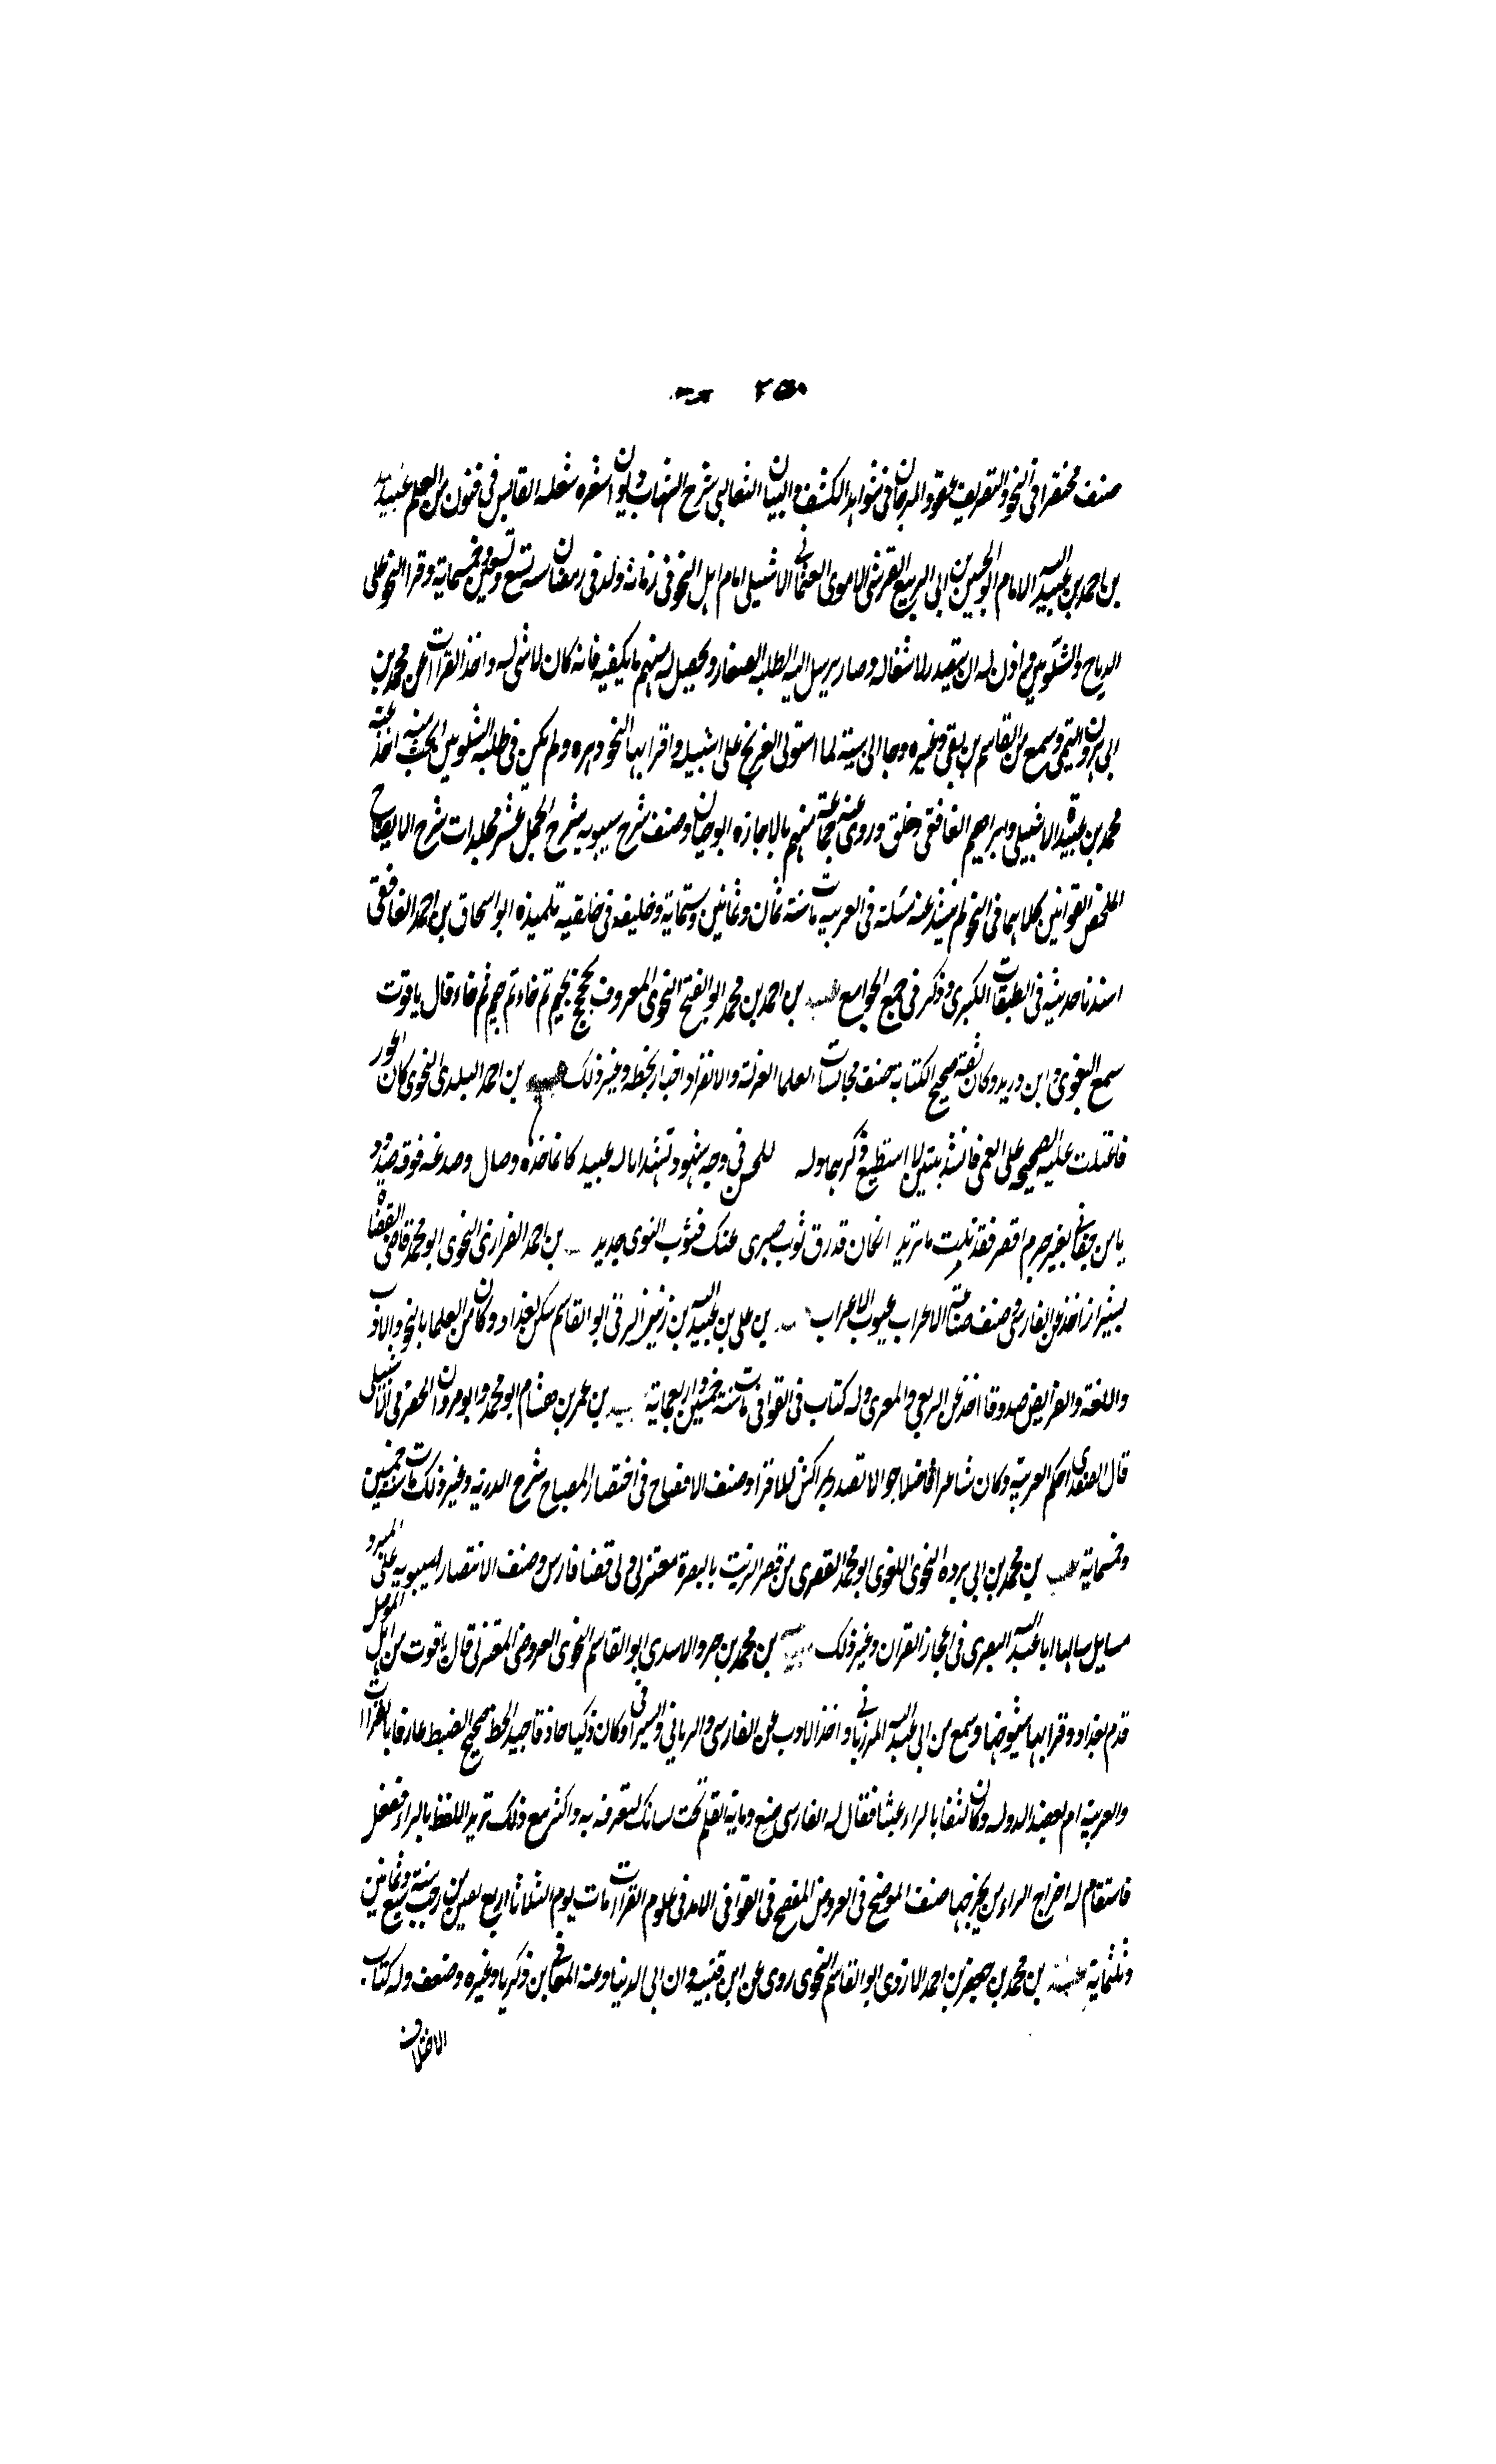 ٢٥٠
صنف مختصرا فى النحو والتصريف عقود المرجان فى شواهد الكشف والبيان الثعالبى شرح الشهاب ديوان شعره شعلة القابس فى فنون من العلم عبيد الله
بن احمد بن عبيد الله الامام ابو الحسين بن ابى الربيع القرشى الاموى العثمانى الاشبيلى امام اهل النحو فى زمانه ولد فى رمضان سنة تسع وتسعين وخمسماية وقرا النحو على
الدباج والشلوبين واذن له ان يتصدر لاشغاله وصار يرسل اليه الطلبه الصغار ويحصل له منهم ما يكفيه فانه كان لا شى له واخذ القراات عن محمد بن
ابى هرون التيمى وسمع من القاسم بن بقى وغيره وجا الى سبتة لما استولى الفرنج على اشبيليه واقرا بها النحو دهره ولم يكن فى طلبة الشلوبين انجب منه اخذ عنه
محمد بن عبيدة الاشبيلى وابراهيم الغافقى وخلق وروى عنه جماعة منهم بالاجازه ابو حيان وصنف شرح سيبويه شرح الجمل عشر مجلدات شرح الايضاح
الملخص القوانين كلاهما فى النحو لم يشذ عنه مسئلة فى العربية مات سنة ثمان وثمانين وستماية وخليفه فى حلقته تلميذه ابو اسحاق بن احمد الغافقى
اسندنا حديثه فى الطبقات الكبرى وذكر فى جمع الجوامع بن احمد بن محمد ابو الفتح النحوى المعروف بجخجخ بجيم ثم خاء ثم جيم ثم خاء قال ياقوت
سمع البغوى وابن دريد وكان ثقة صحيح الكتابة صنف مجالسات العلما العزلة والانفراد اخبار بخطه وغير ذلك بن احمد البلدى النحوى كان اعور
فاعتلت عليه الصحيحه على العمى فانشد بيتين لا استطيع ذكرهما وله للحسن فى وجهه شهود تشهد انا له عبيد كانما خده وصال وصدغه فوقه صدود
يا من جفانى بغير جرم اقصر فقد نلت ما تريد ان كان قد رق ثوب صبرى عنك فثوب النوى جديد بن احمد الفزارى النحوى ابو محمد قاضى القضاة
بشيراز اخذ عن الفارسى وصنف صناعة الاعراب عيوب الاعراب بن على بن عبيد الله بن زنين الرقى ابو القاسم سكن بغداد وكان من العلما بالنحو والادب
واللغة والفرايض صدوقا اخذ عن الربعى والمعرى وله كتاب فى القوافى مات سنة خمسين واربعماية بن عمر بن هشام ابو محمد وابو مروان الحضرمى الاشبيلى
قال الصفدى احكم العربية وكان شاعرا فاضلا جوالا تصدر بمراكش للاقرا وصنف الافصاح فى اختصار المصباح شرح الدريدية وغير ذلك مات سنة خمسين
وخمسماية بن محمد بن ابى برده النحوى اللغوى ابو محمد القصرى من قصر الزيت بالبصرة معتزلى ولى قضا فارس وصنف الانتصار لسيبويه على المبرد
مسايل سالها ابا عبد الله البصرى فى اعجاز القران وغير ذلك بن محمد بن جرو الاسدى ابو القاسم النحوى العروضى المعتزلى قال ياقوت من اهل الموصل
قدم بغداد وقرا بها شيوخها وسمع من ابى عبد الله المرزبانى واخذ الادب عن الفارسى والرمانى والسيرافى وكان ذكيا حاذقا جيد الخط صحيح الضبط عارفا بالقراات
والعربية ام لعضد الدوله وكان لثغا بالراء غينا فقال له الفارسى ضع ذبابة القلم تحت لسانك لتعرفه به واكثر مع ذلك ترديد اللفظ بالراء ففعل
فاستقام له اخراج الراء من مخرجها صنف الموضح فى العروض المفصح فى القوافى الامد فى علوم القراات مات يوم الثلاثا اربع بقين من رجب سنة سبع وثمانين
وثلثماية بن محمد بن جعفر بن احمد الازدى ابو القاسم النحوى روى عن ابن قتيبه وابن ابى الدنيا وعنه المعافى بن ذكريا وغيره وضعف وله كتاب
الاختلاف